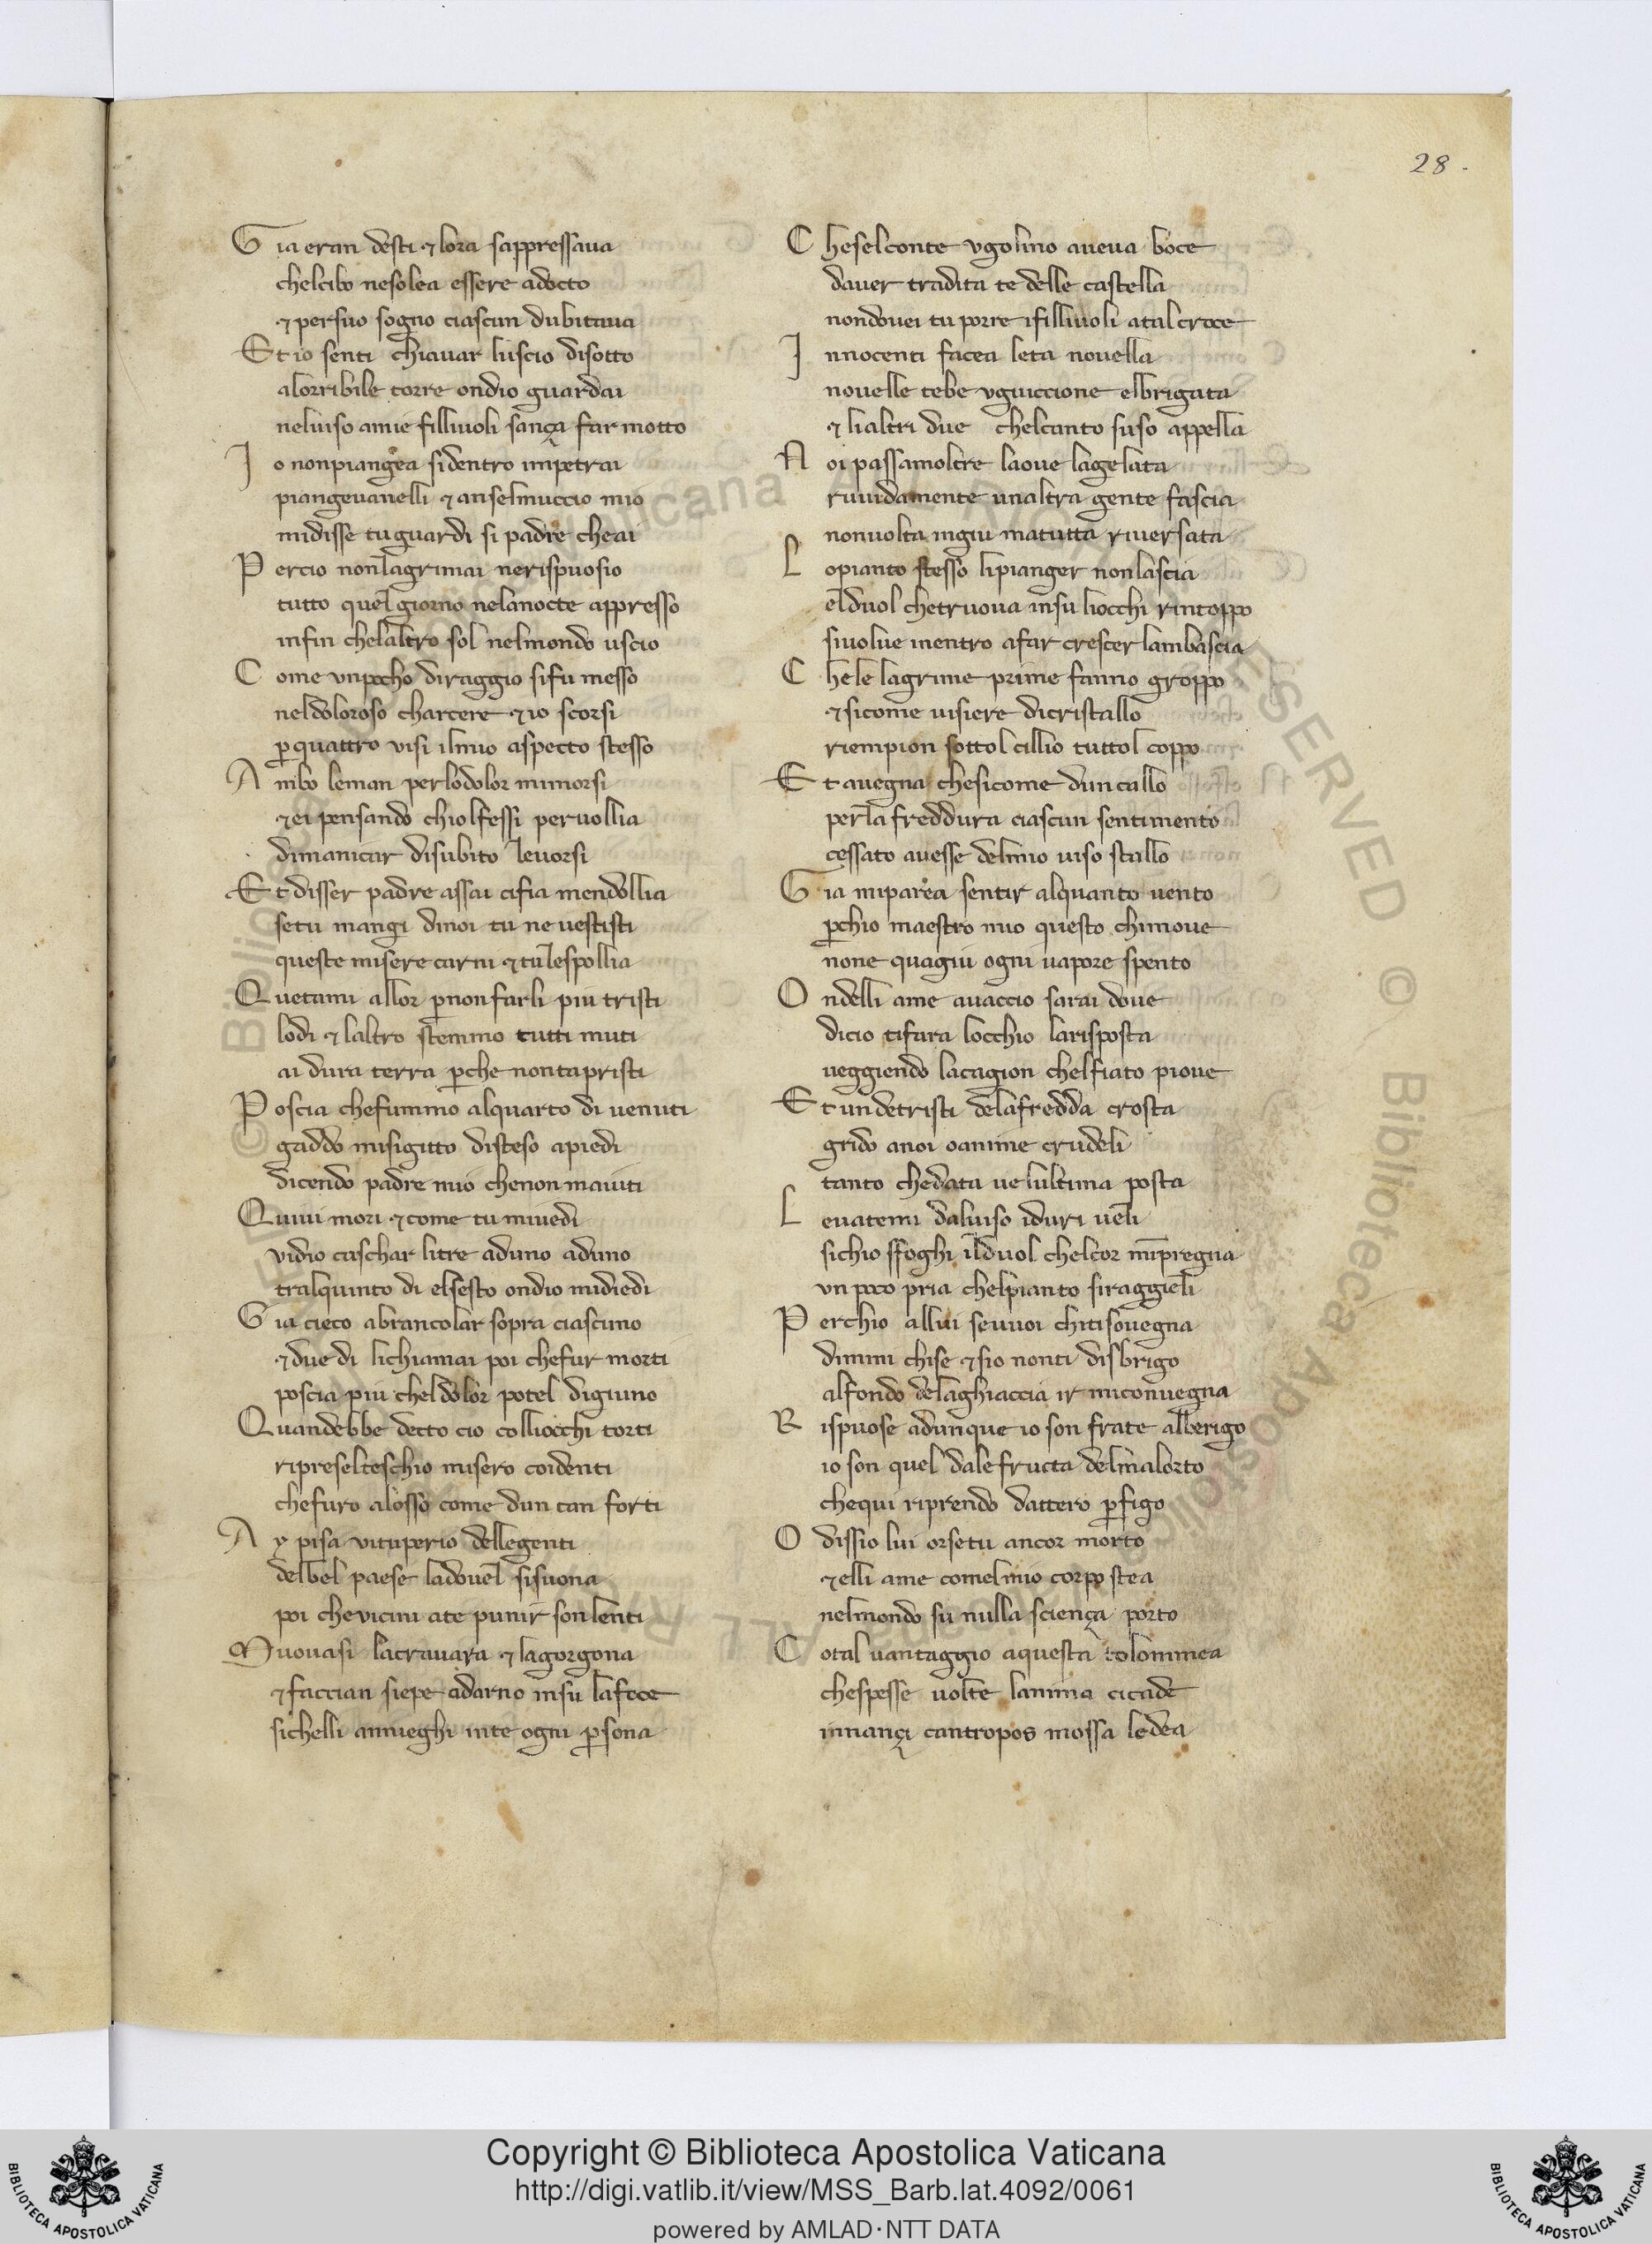 28.
Gia eran desti ⁊ lora sappressaua
chelcibo nesolea essere adocto
⁊ persuo sogno ciascun dubitaua
Et io senti chiauar luscio disotto
alorribile torre ondio guardai
neluiso amie filliuoli sança far motto
Io nonpiangea sidentro impetrai
piangeuanelli ⁊ anselmuccio mio
midisse tu guardi si padre cheai
Percio nonlagrimai nerispuosio
tutto quelgiorno nelanocte appresso
infin chelaltro sol nelmondo uscio
Come vnpocho diraggio sifu messo
neldoloroso charcere ⁊ io scorsi
ꝑ quattro visi ilmio aspecto stesso
Ambo leman perlodolor mimorsi
⁊ ei pensando chiolfessi peruollia
dimanicar disubito leuorsi
Et disser padre assai cifia mendollia
setu mangi dinoi tu ne uestisti
queste misere carni ⁊ tulespollia
Quetami allor ꝑnonfarli piu tristi
lodi ⁊ laltro stemmo tutti muti
ai dura terra ꝑche nontapristi
Poscia chefummo alquarto di uenuti
gaddo misigitto disteso apiedi
dicendo padre mio chenon maiuti
Quiui mori ⁊ come tu miuedi
vidio caschar litre aduno aduno
tralquinto di elsesto ondio midiedi
Gia cieco abrancolar sopra ciascuno
⁊ due di lichiamai poi chefur morti
poscia piu cheldolor potel digiuno
Quandebbe decto cio colliocchi torti
ripreselteschio misero coidenti
chefuro alosso come dun can forti
Ay pisa vituperio dellegenti
delbel paese ladouel sisuona
poi chevicini ate punir son lenti
Muouasi lacrauara ⁊ lagorgona
⁊ faccian siepe adarno insu lafoce
sichelli annieghi inte ogni ꝑsona
Cheselconte vgolino aueua boce
dauer tradita te delle castella
nondouei tu porre ifilliuoli atalcroce
Innocenti facea leta nouella
nouelle tebe vguiccione elbrigata
⁊ lialtri due chelcanto suso appella
Noi passamoltre laoue lagelata
ruuidamente unaltra gente fascia
nonuolta ingiu matutta riuersata
Lopianto stesso lipianger nonlascia
elduol chetruoua insu liocchi rintoppo
siuolue inentro afar crescer lambascia
Chele lagrime prime fanno groppo
⁊ sicome uisiere dicristallo
riempion sottol cillio tuttol coppo
Et auegna chesicome duncallo
perla freddura ciascun sentimento
cessato auesse delmio uiso stallo
Gia miparea sentir alquanto uento
ꝑchio maestro mio questo chimoue
none quagiu ogni uapore spento
Ondelli ame auaccio sarai doue
dicio tifara locchio larisposta
ueggiendo lacagion chelfiato pioue
Et un detristi delafredda crosta
grido anoi oanime crudeli
tanto chedata uelultima posta
Leuatemi daluiso iduri ueli
sichio sfoghi ilduol chelcor mi̅pregna
vn poco pria chelpianto siraggieli
Perchio allui seuuoi chitisouegna
dimmi chise ⁊ sio nonti disbrigo
alfondo delaghiaccia ir miconuegna
Rispuose adunque io son frate alberigo
io son quel dalefructa delmalorto
chequi riprendo dattero ꝑ figo
O dissio lui orsetu ancor morto
⁊ elli ame comelmio corpo stea
nelmondo su nulla sciença porto
Cotal uantaggio aquesta tolommea
chespesse uolte lanima cicade
innançi cantropos mossa ledea
Copyright © Biblioteca Apostolica Vaticana
http://digi.vatlib.it/view/MSS_Barb.lat.4092/0061
powered by AMLAD·NTT DATA